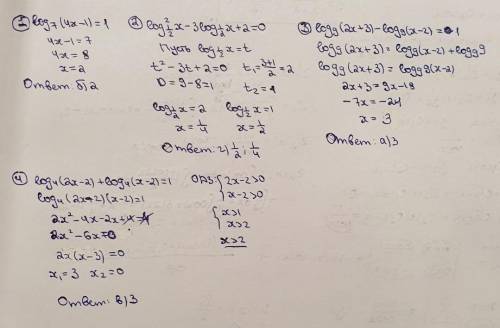 ① log₇(4x-1)=1
4x-1=7
4x=8
x=2
Ответ: б) 2
② log²½ x-3log½ x+2=0
Пусть log½ x=t
t²-3t+2=0 t₁=(3+1)/2=2
D=9-8=1 t₂=1
log½ x=2 log½ x=1
x=¼ x=½
Ответ: г) ½; ¼
③ log₉(2x+3)-log₉(x-2)=1
log₉(2x+3)=log₉(x-2)+log₉9
log₉(2x+3)=log₉9(x-2)
2x+3=9x-18
-7x=-21
x=3
Ответ: а) 3
④ log₄(2x-2)+log₄(x-2)=1
log₄(2x-2)(x-2)=1
2x²-4x-2x+4=4
2x²-6x=0
2x(x-3)=0
x₁=3 x₂=0
Ответ: в) 3
ОДЗ: {2x-2>0
x-2>0
{x>1
x>2
x>2